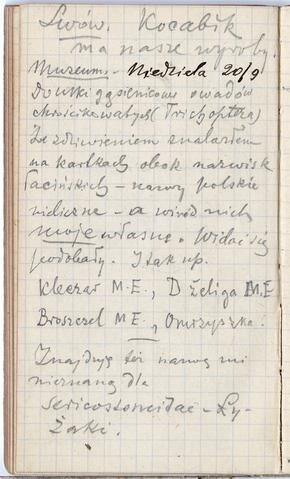 Lwów. Kocabik
ma nasze wyroby.
Muzeum. - Niedziela 20/9
Domki gąsienicowe owadów
chruścikowatych (Trichoptera)
Ze zdziwieniem znalazłem
na kartkach obok nazwisk
łacińskich - nazwy polskie
nieliczne - a wśród nich
moje własne. Widać się
podobały. I tak np.
Kleczar M.E., Dżeliga M.E
Broszczel M.E.,
Znajduję też nazwę mi
nieznaną dla
Sericostomidae - Ły-
żarki.